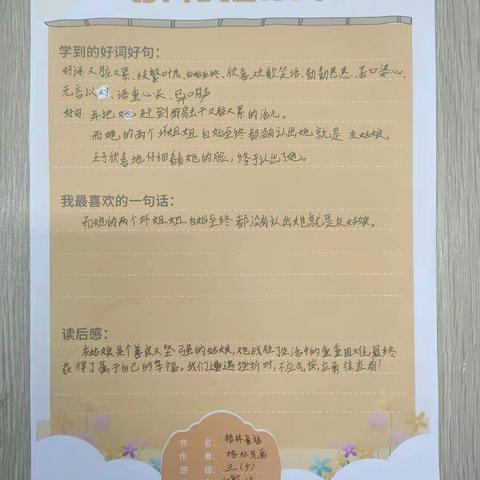 学到的好词好句:
好词 又脏又累、枝繁叶茂、自始至终、欣喜、欢歌笑语、勤勤恳恳、苦口婆心、
无言以对、语重心长、异口同声
好句 并把她赶到厨房去干又脏又累的活儿。
而她的两个坏姐姐自始至终都没有认出她就是灰姑娘。
王子欣喜地仔细看她的脸，终于认出了她。
我最喜欢的一句话:
而她的两个坏姐姐自始至终都没有认出她就是灰姑娘。
读后感:
灰姑娘是个善良又坚强的姑娘，她战胜了生活中的重重困难，最终
获得了属于自己的幸福。我们遭遇挫折时，不应气馁，应勇往直前！
书名: 格林童话
作者: 格林兄弟
班级: 三(5)